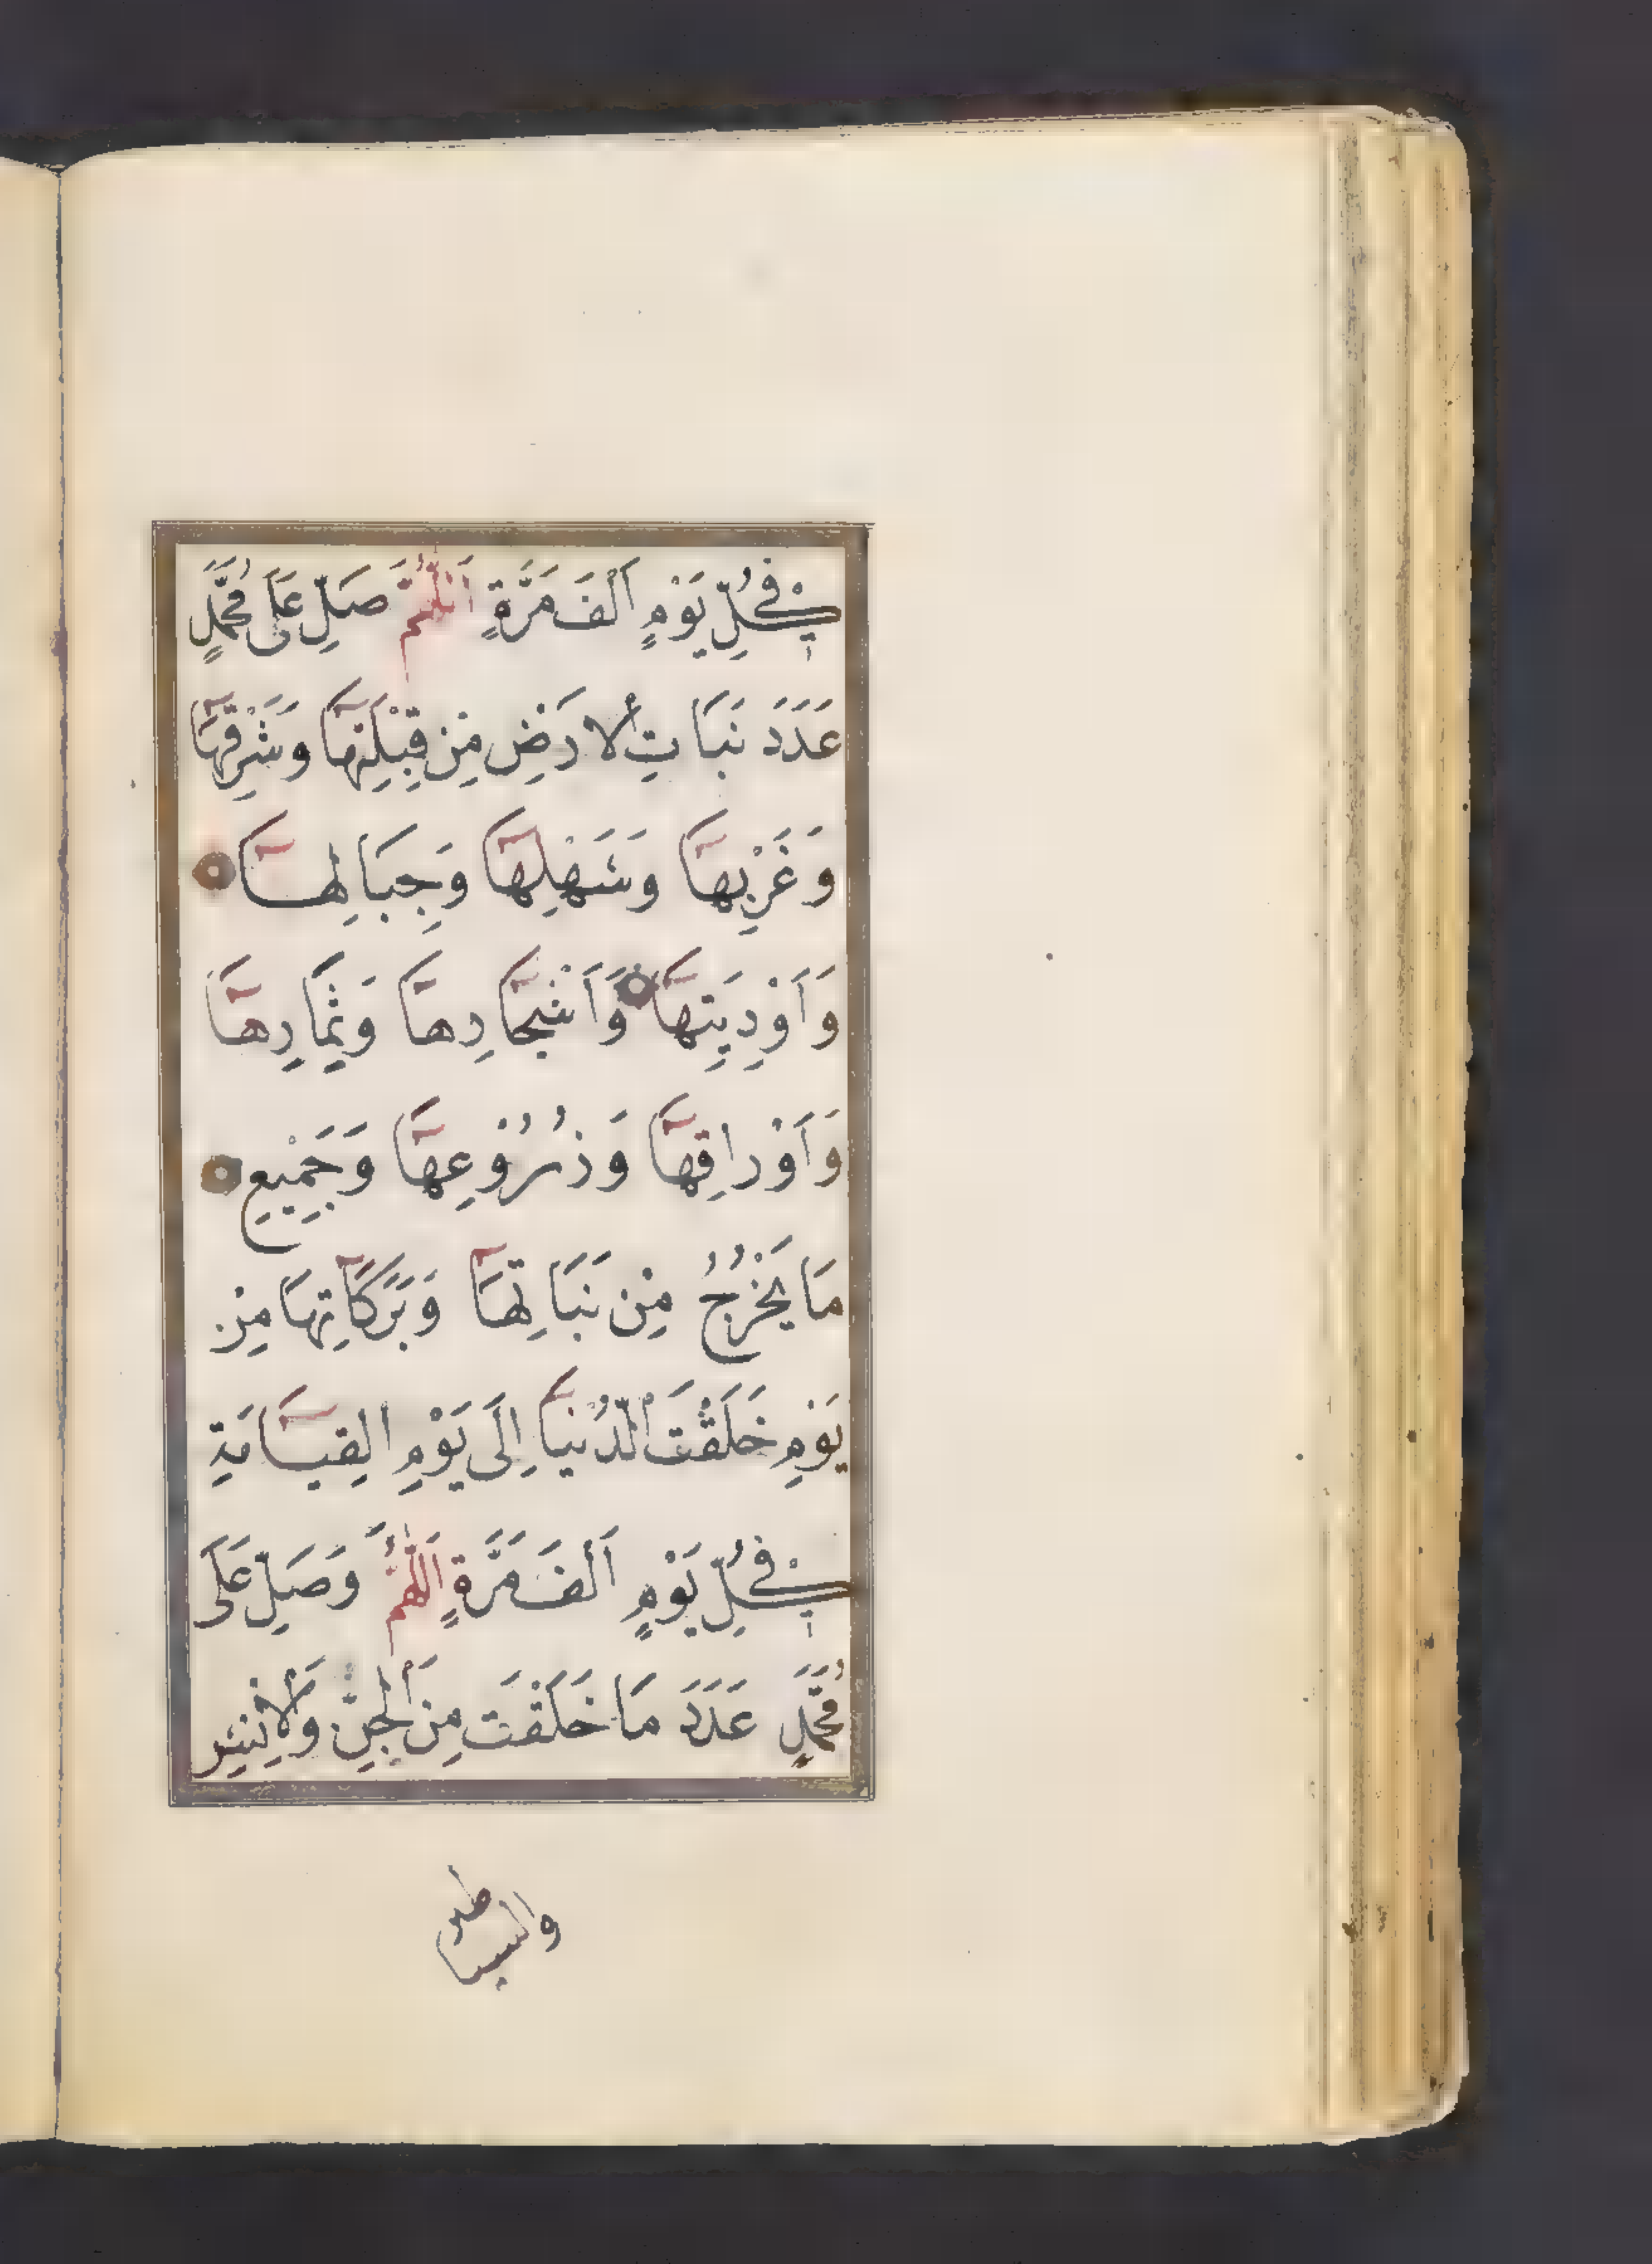 فِي كُلِّ يَوْمٍ اَلْفَ مَرَّةٍ اَللّٰهُمَّ صَلِّ عَلَى مُحَمَّدٍ
عَدَدَ نَبَاتِ الْاَرْضِ مِنْ قِبْلَتِهَا وَشَرْقِهَا
وَغَرْبِهَا وَسَهْلِهَا وَجِبَالِهَا
وَاَوْدِيَتِهَا وَاَشْجَارِهَا وَثِمَارِهَا
وَاَوْرَاقِهَا وَزُرُوْعِهَا وَجَمِيْعِ
مَا يَخْرُجُ مِنْ نَبَاتِهَا وَبَرَكَاتِهَا مِنْ
يَوْمِ خَلَقْتَ الدُّنْيَا اِلَى يَوْمِ الْقِيَامَةِ
فِي كُلِّ يَوْمٍ اَلْفَ مَرَّةٍ اَللّٰهُمَّ وَصَلِّ عَلَى
مُحَمَّدٍ عَدَدَ مَا خَلَقْتَ مِنَ الْجِنِّ وَالْاِنْسِ
والشياطين